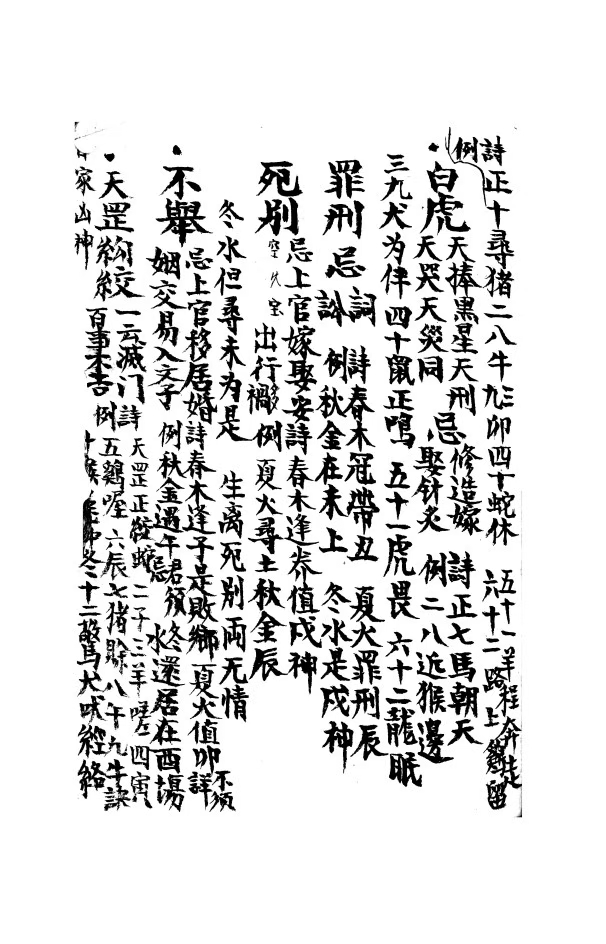 詩例正十尋猪二八牛 九三卯四十蛇休 五十一羊程奔走 六十二路上雞留
白虎 天棒黑星天刑 天哭天災同 忌修造嫁娶針灸 詩例正七馬朝天 二八近猴邊
三九犬为伴 四十鼠正鳴 五十一虎畏 六十二龍眠
罪刑 忌詞訟 詩例春木冠帶丑 夏火罪刑辰 秋金在未上 冬水是戌神
死别 忌上官嫁娶安 出行移 詩例春木逢养值戌神 夏火尋土秋金辰
冬水但尋未为是 生离死别両无情
不舉 忌上官移居婚姻交易入文子 詩例春木逢子是敗鄉 夏火值卯不須詳 秋金遇午君須忌 冬水還居在酉場
天罡勾絞 一云滅门 百事不吉 詩例天罡正 蛇二子三羊 四寅 五鷄喔 六辰七猪 八午九牛 十猴 十二驚犬吠經絡
家凶神